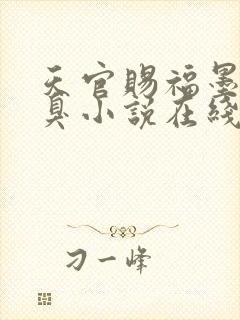 天官赐福墨
臭小说在线
刁一峰